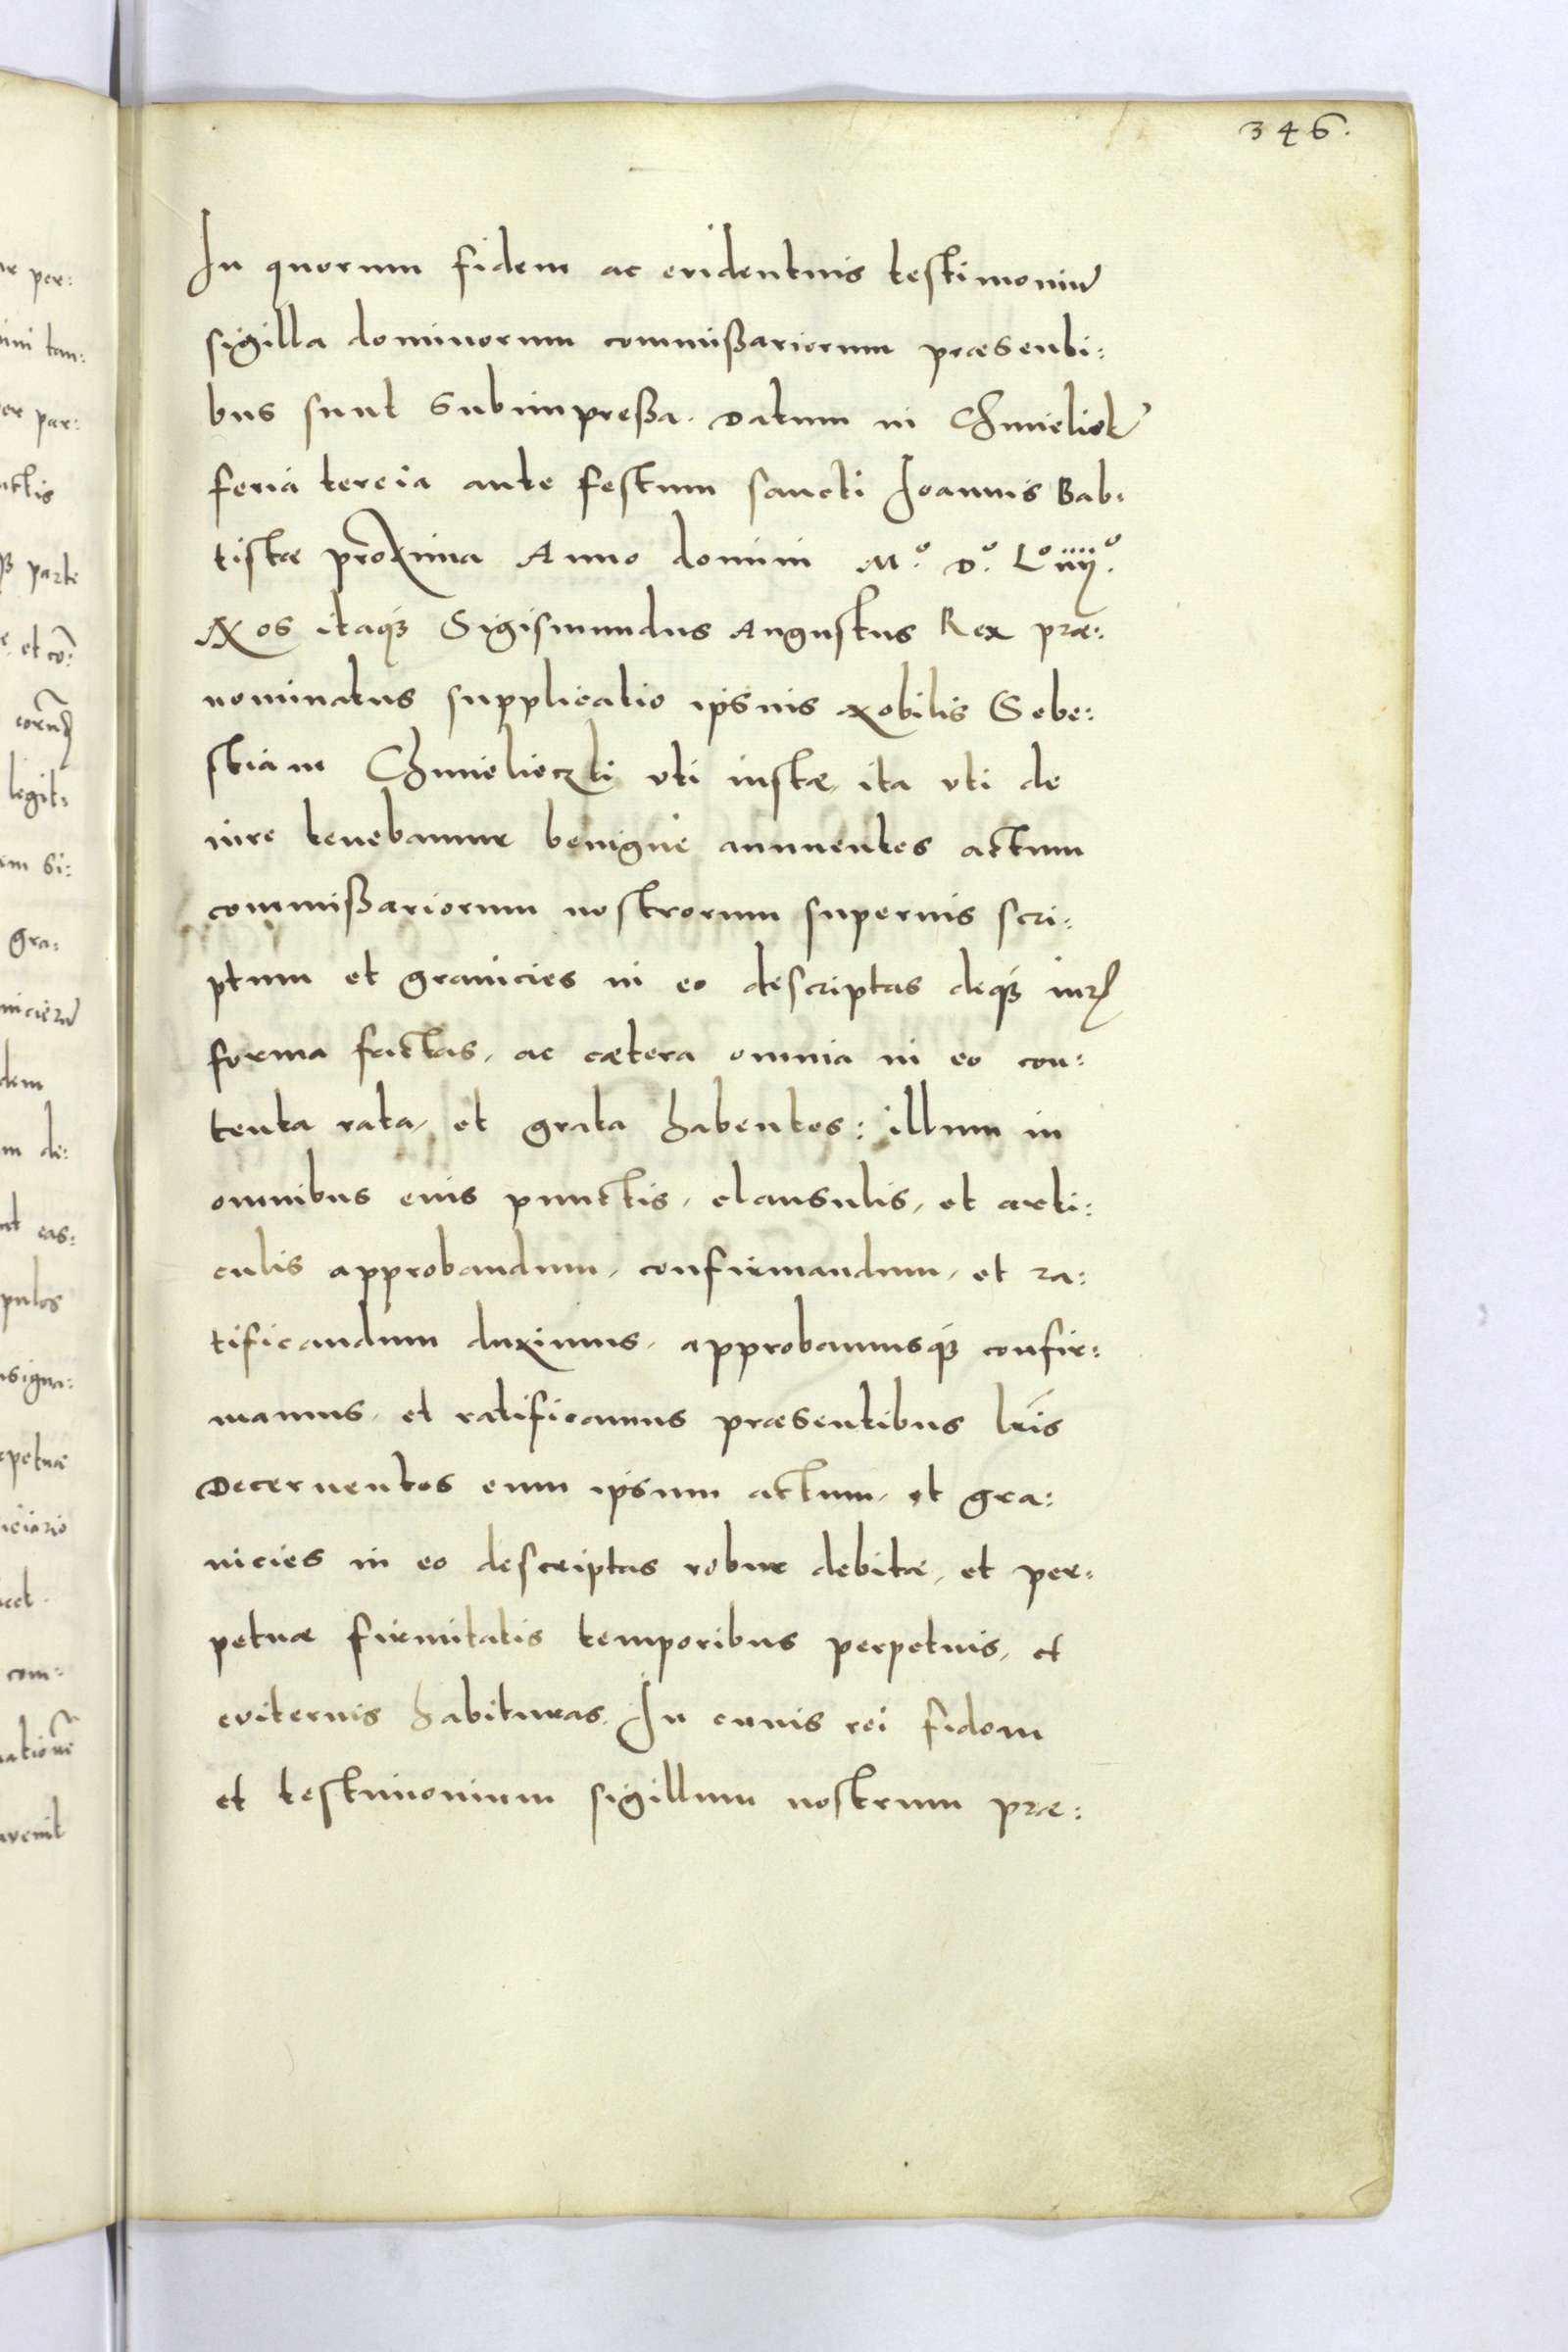 346.
In quorum fidem ac euidentius testimoniũ
sigilla dominorum commißariorum præsenti:
bus sunt subimpreßa. Datum in Chmieliek
feria tercia ante festum sancti Joannis Bab:
tistæ proxima Anno domini M.º D.º Lº iiij.º
Nos itaq3 Sigismundus Augustus Rex præ:
nominatus supplicatio ipsius Nobilis Sebe:
stiani Chmielieczki vti iustæ, ita vti de
iure tenebamur benigné annuentes actum
commißariorum nostrorum superius scri:
ptum et granicies in eo descriptas deq3 iuris
forma factas, ac cætera omnia in eo con:
tenta rata, et grata habentes: illum in
omnibus eius punctis, clausulis, et arti:
culis approbandum, confirmandum, et ra:
tificandum duximus, approbamusq3 confir:
mamus, et ratificamus præsentibus lr̃is
Decernentes eum ipsum actum, et gra:
nicies in eo descriptas robur debitæ, et per:
petuæ firmitatis temporibus perpetuis, et
euiternis habituras. In cuius rei fidem
et testimonium sigillum nostrum præ:
per:
tan:
par:
parte
et cõ:
legit:
em si:
gra:
dem
de:
eas:
com: